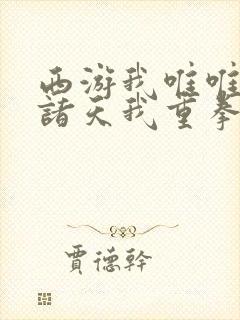 西游我唯唯
諸天我重拳
賈德幹